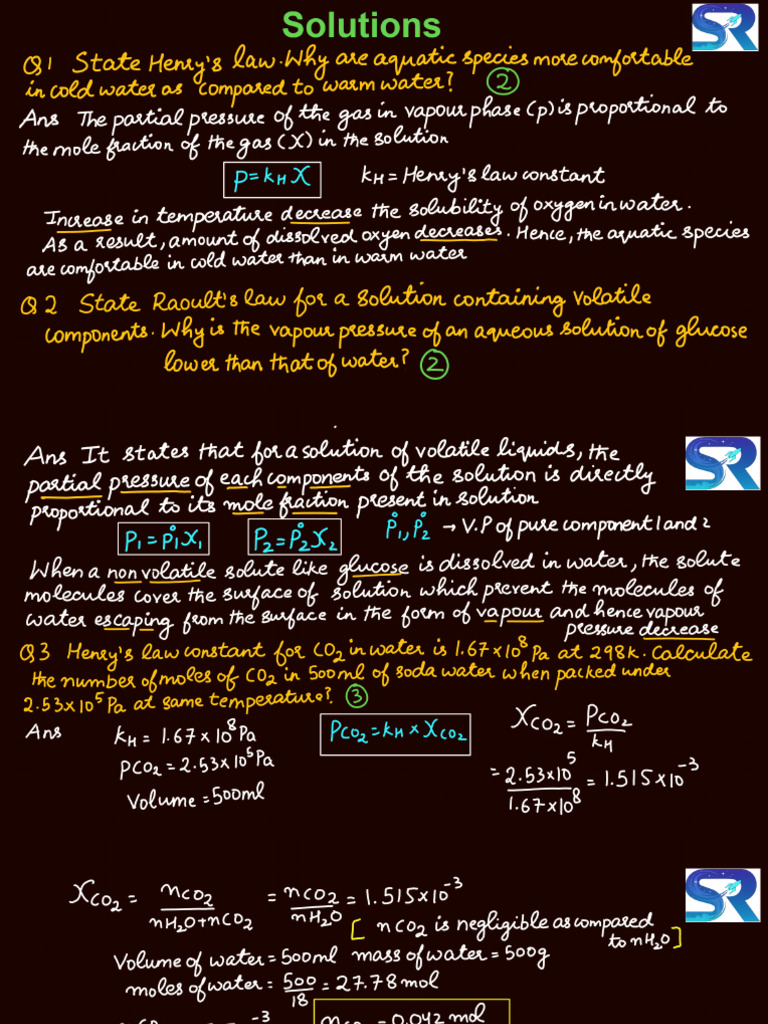 Solutions
SR
Q1 State Henry's law. Why are aquatic species more comfortable
in cold water as compared to warm water? (2)
Ans The partial pressure of the gas in vapour phase (p) is proportional to
the mole fraction of the gas (X) in the solution
p = kH X kH = Henry's law constant
Increase in temperature decrease the solubility of oxygen in water.
As a result, amount of dissolved oxyen decreases. Hence, the aquatic species
are comfortable in cold water than in warm water
Q2 State Raoult's law for a solution containing volatile
components. Why is the vapour pressure of an aqueous solution of glucose
lower than that of water? (2)
SR
Ans It states that for a solution of volatile liquids, the
partial pressure of each components of the solution is directly
proportional to its mole fraction present in solution
P1 = P°1 X1 P2 = P°2 X2 P°1, P°2 → V.P of pure component 1 and 2
When a non volatile solute like glucose is dissolved in water, the solute
molecules cover the surface of solution which prevent the molecules of
water escaping from the surface in the form of vapour and hence vapour
pressure decrease
Q3 Henry's law constant for CO2 in water is 1.67×10^8 Pa at 298K. Calculate
the number of moles of CO2 in 500ml of soda water when packed under
2.53×10^5 Pa at same temperature? (3)
Ans kH = 1.67×10^8 Pa PCO2 = kH × XCO2 XCO2 = PCO2/kH
pCO2 = 2.53×10^5 Pa
Volume = 500ml
= 2.53×10^5/1.67×10^8 = 1.515×10^-3
SR
XCO2 = nCO2/nH2O+nCO2 = nCO2/nH2O = 1.515×10^-3
[nCO2 is negligible as compared
to nH2O]
Volume of water = 500ml mass of water = 500g
moles of water = 500/18 = 27.78 mol
nCO2 = 0.042 mol